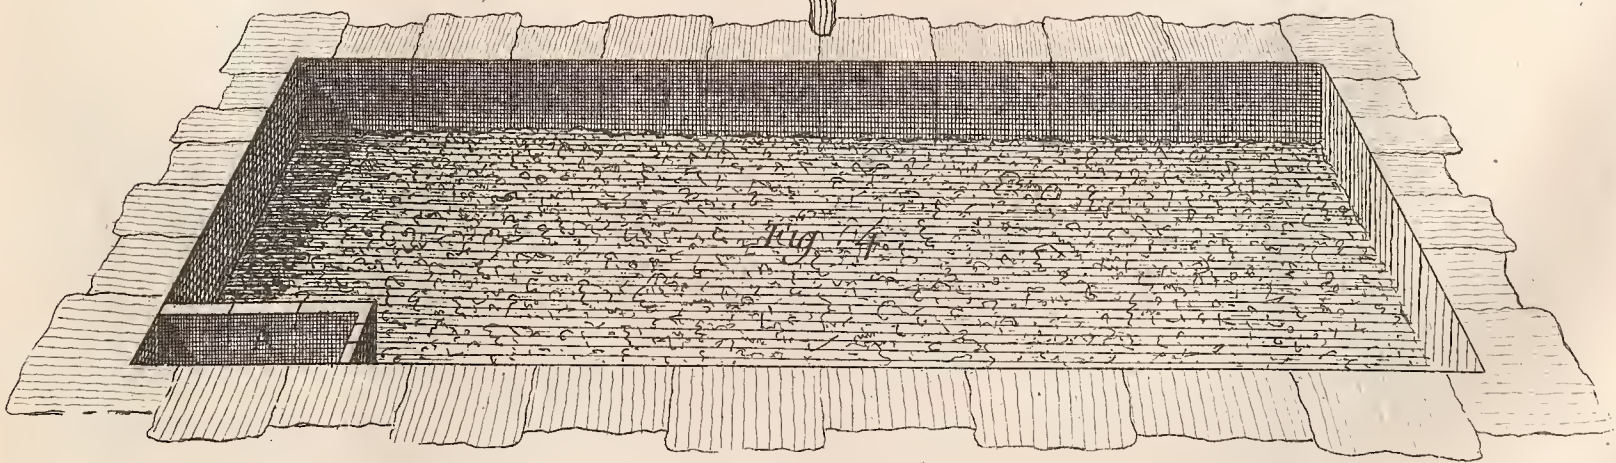 Fig. 4
A